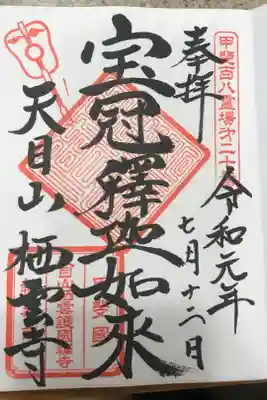 甲斐百八霊場第二十
奉拝
令和元年
七月十二日
宝冠釋迦如来
天目山
栖雲寺